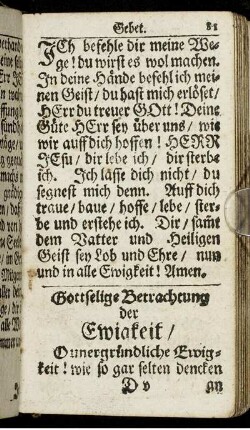 Gebet. 81
ICh befehle dir meine We-
ge! du wirst es wol machen.
In deine Hände befehl ich mei-
nen Geist / du hast mich erlöset /
HErr du treuer GOtt! Deine
Güte HErr sey über uns / wie
wir auff dich hoffen! HERR
JEsu / dir lebe ich / dir sterbe
ich. Ich lasse dich nicht / du
segnest mich denn. Auff dich
traue / baue / hoffe / lebe / ster-
be und erstehe ich. Dir / samt
dem Vatter und Heiligen
Geist sey Lob und Ehre / nun
und in alle Ewigkeit! Amen.
Gottselige Betrachtung
der
Ewigkeit /
O unergründliche Ewig-
keit! wie so gar selten dencken
D v an